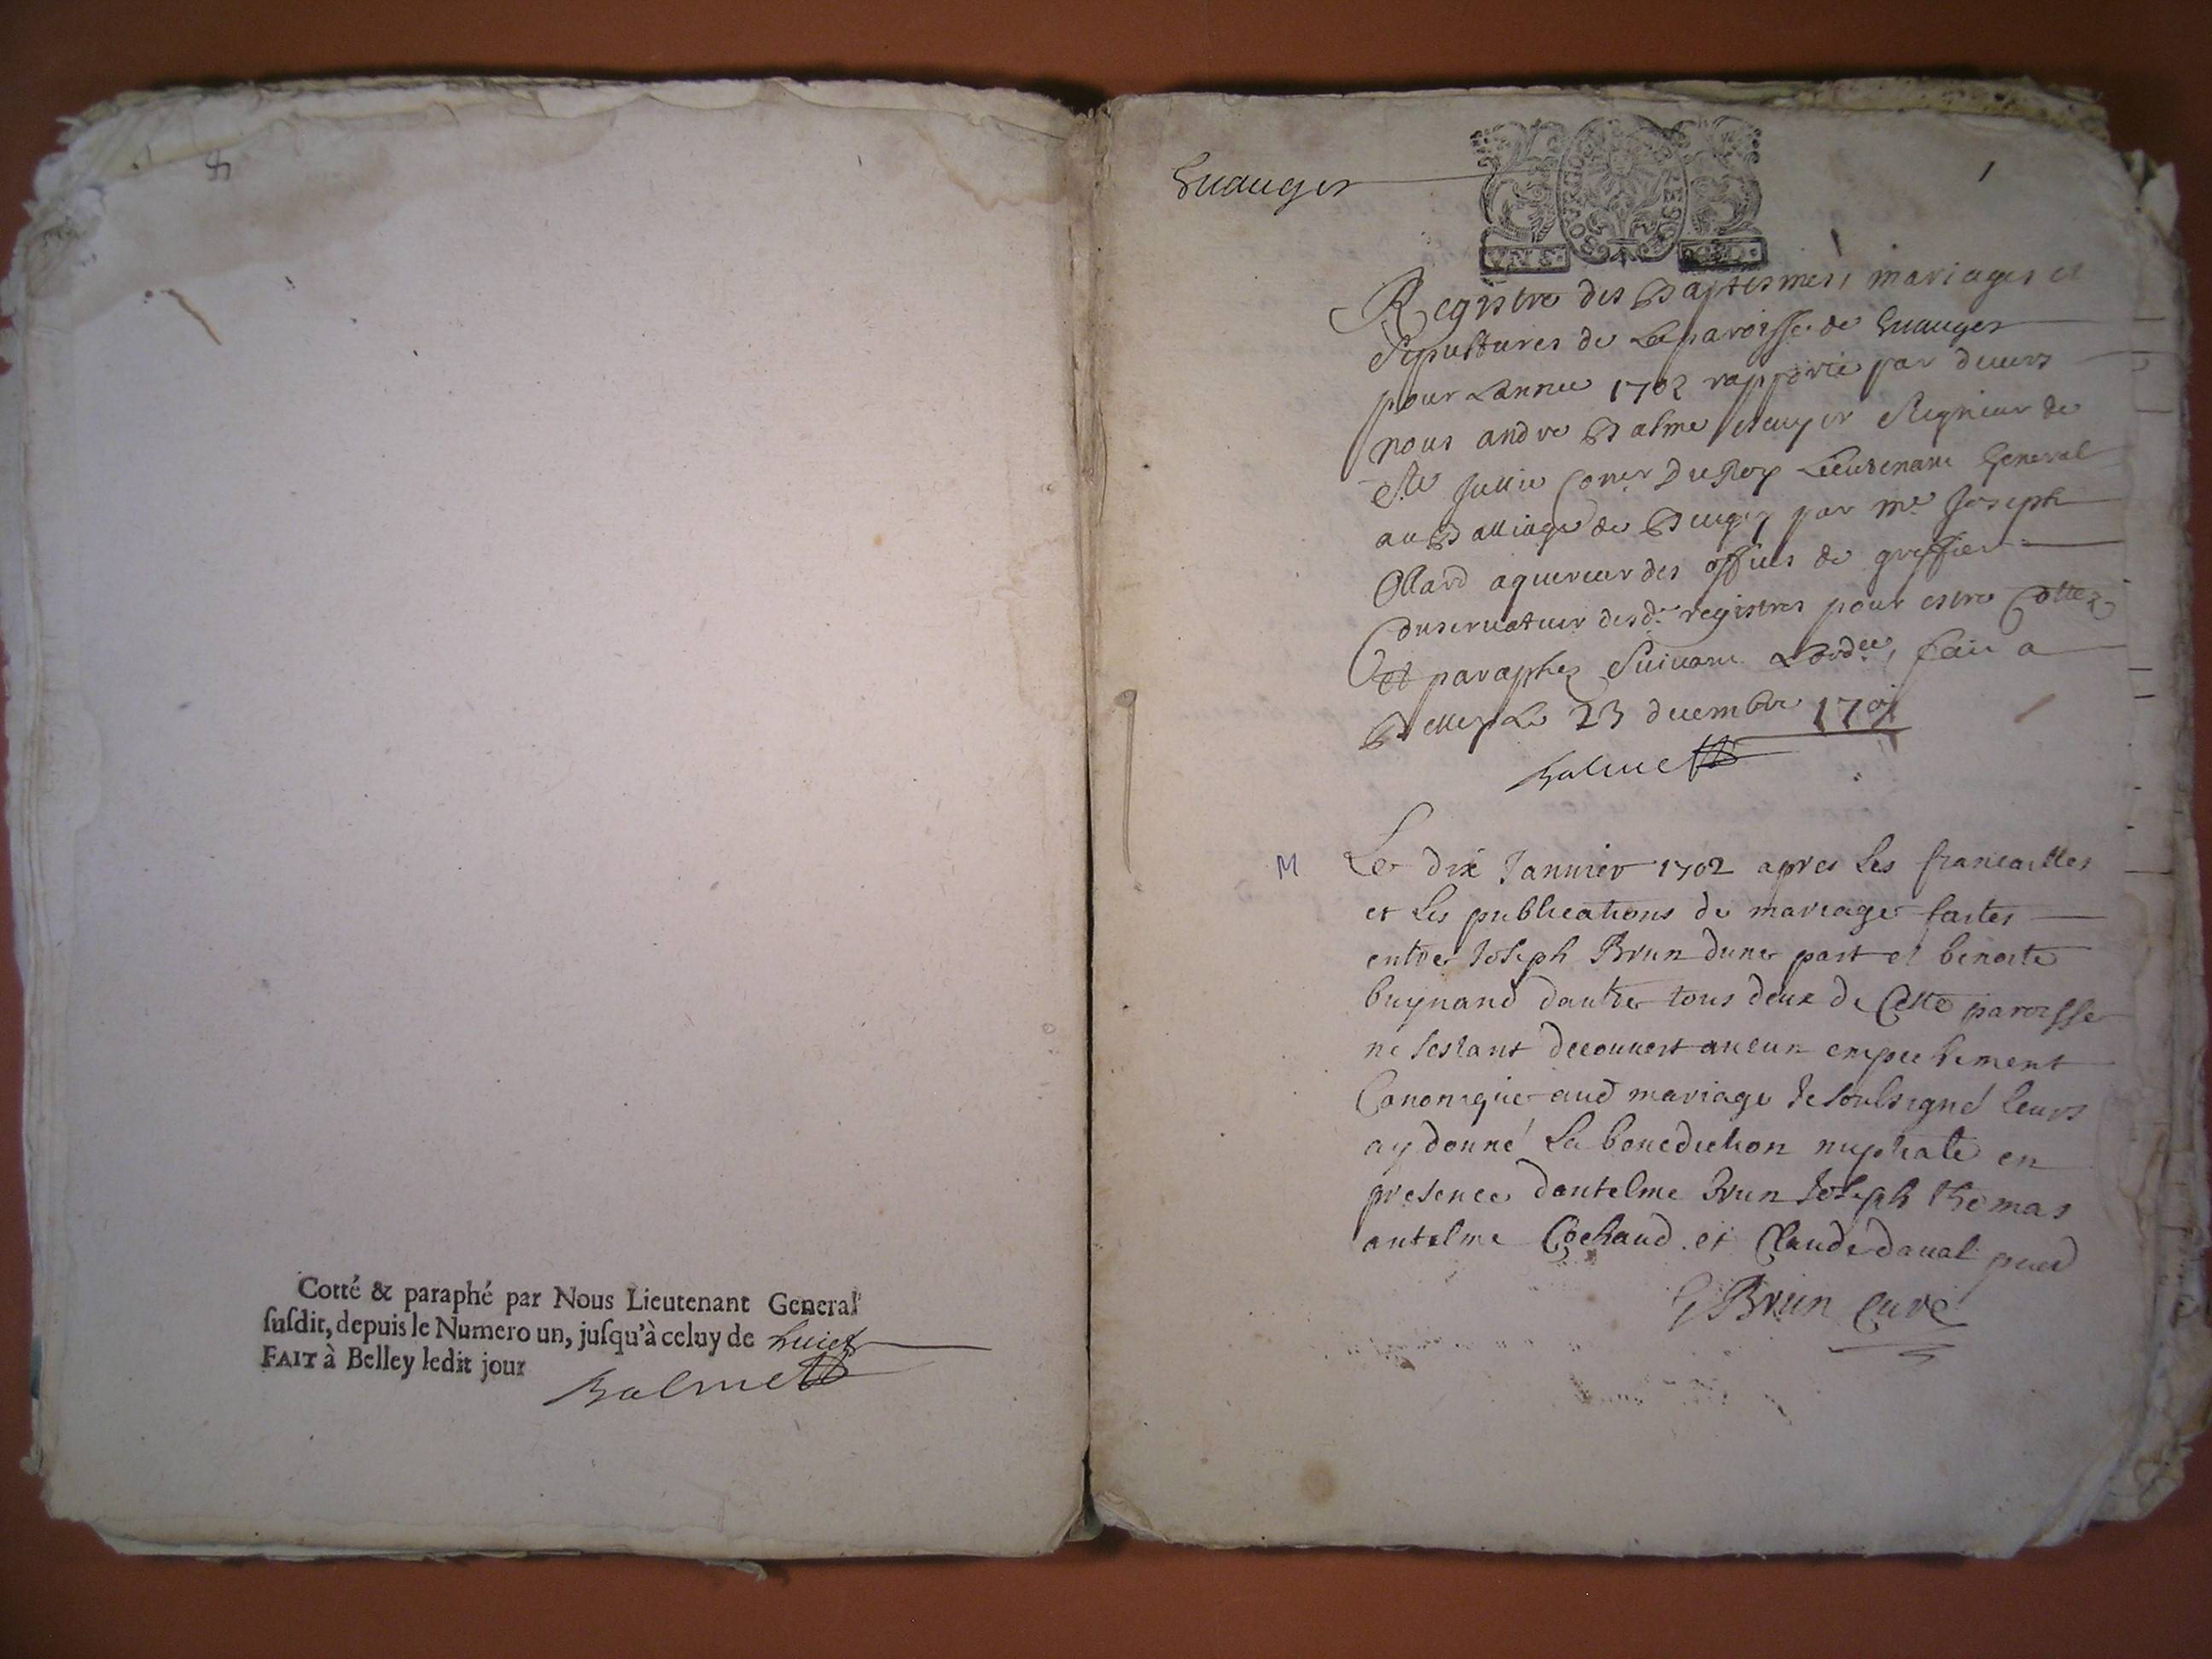 8
Cotté & paraphé par Nous Lieutenant General
susdit, depuis le Numero un, jusqu'à celuy de huict
FAIT à Belley ledit jour
Balme
Evauges
1
Registre des Baptesmes, mariages et
Sepultures de La paroisse de Evauges
pour Lannee 1702 rapporté par devers
nous andre Balme escuyer Seigneur de
Ste Jullie Coner Du Roy Lieutenant General
au Balliage de Beugey par me Joseph
Ollard aquereur des offices de greffier
Conservateur desd. registres pour estre Cottez
Et paraphez Suivant Lordce, fait a
Belley Le 23 decembre 1701
Balme
M
Le dix Januier 1702 apres Les fiancailles
et Les publications de mariage faites
entre Joseph Brun dune part et benoite
buynand dautre tous deux de Cette paroisse
ne sestant decouuert aucun empechement
Canonique aud mariage Je soubsigné leurs
ay donné La benediction nuptiale en
presence dantelme Brun Joseph thomas
antelme Cochaud et Claude daual
Brun Curé